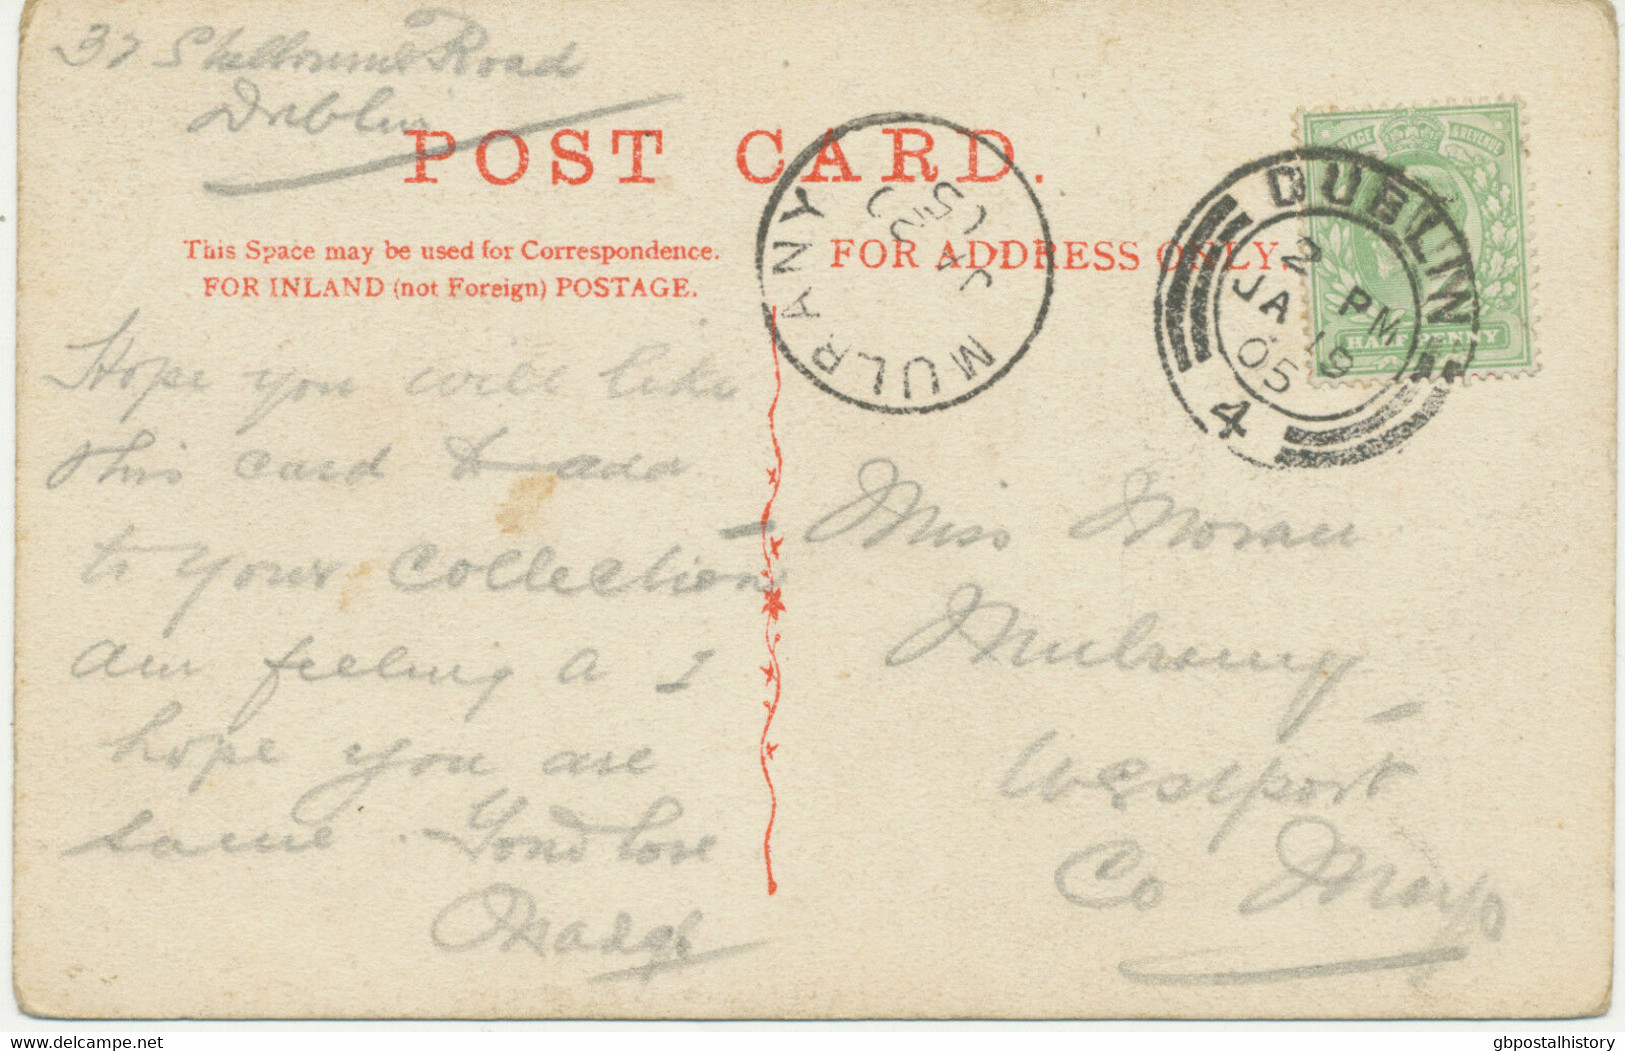 37 Shelbourne Road
Dublin
POST CARD.
This Space may be used for Correspondence.
FOR INLAND (not Foreign) POSTAGE.
FOR ADDRESS ONLY.
MULRANY
JA
05
DUBLIN
2 PM
JA 19
05
4
POSTAGE & REVENUE
HALF PENNY
Hope you will like
this card to add
to your collection –
am feeling A 1
hope you are
same. – Fond love
Madge
Miss Moran
Mulrany
Westport
Co Mayo
Delcampe.net
gbpostalhistory